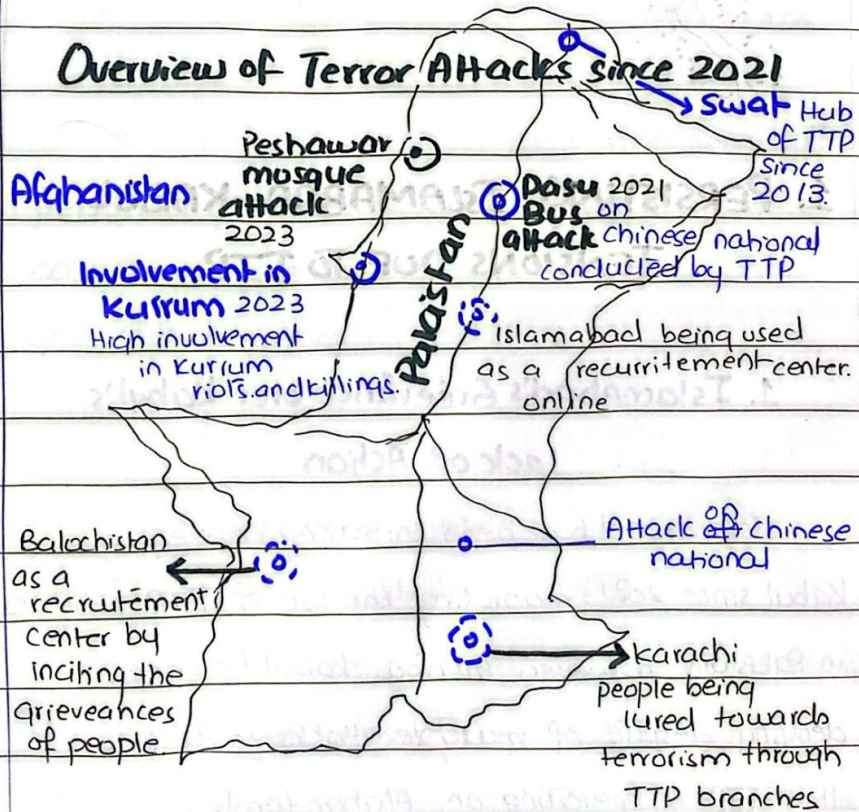 Overview of Terror Attacks since 2021
Swat Hub
of TTP
Since
2013.
Peshawar
mosque
attack
2023
Afghanistan
Dasu 2021
Bus on
attack Chinese national
conducted by TTP
Involvement in
Kurrum 2023
High involvement
in Kurrum
riots.and killings.
Pakistan
Islamabad being used
as a recurritement center.
online
Attack of Chinese
national
Balochistan
as a
recruitement
center by
inciting the
grieveances
of people
Karachi
people being
lured towards
terrorism through
TTP branches